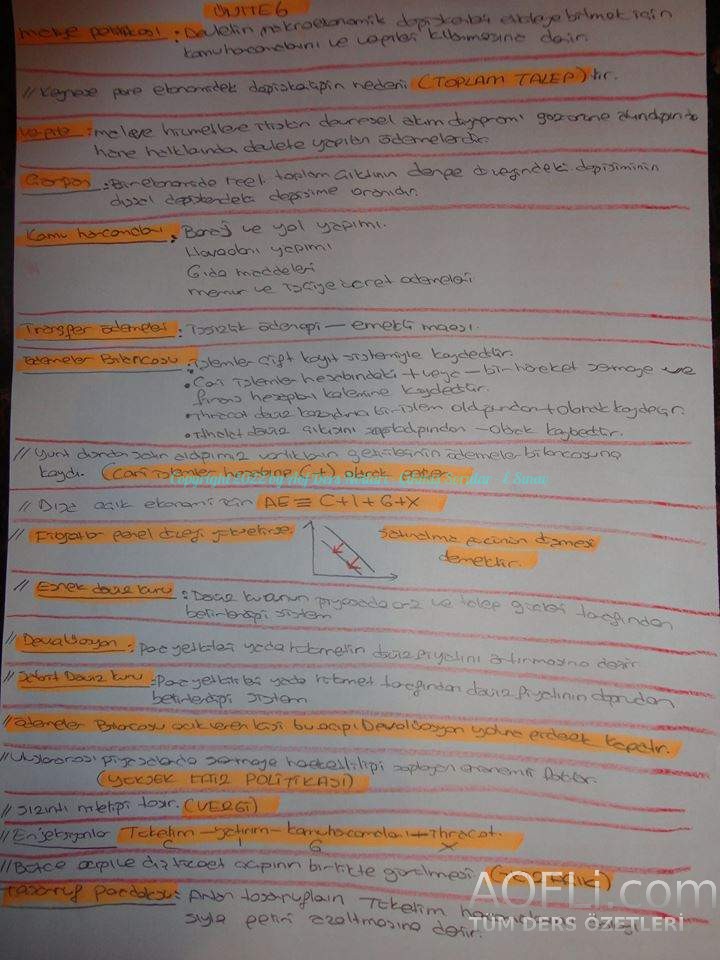 ÜNİTE 6
maliye politikası : Devletin makroekonomik değişkenleri etkileyebilmek için
kamu harcamalarını ve vergileri kullanmasına denir.
// Keynese göre ekonomideki dalgalanmanın nedeni (TOPLAM TALEP) tir.
Vergi : mal ve hizmetlere ilişkin devresel akım diyagramı göz önüne alındığında
hane halklarından devlete yapılan ödemelerdir.
Çarpan : Bir ekonomide reel toplam çıktının denge düzeyindeki değişiminin
otonom değişkendeki değişime oranıdır.
Kamu harcamaları : Baraj ve yol yapımı.
Havaalanı yapımı
Gıda maddeleri
memur ve işçiye ücret ödemeleri
Transfer ödemeleri : işsizlik ödeneği — emekli maaşı.
Ödemeler Bilançosu : işlemler çift kayıt sistemiyle kaydedilir.
• Cari işlemler hesabındaki + veya — bir hareket sermaye ve
finans hesapları kalemine kaydedilir.
• ihracat döviz kazandırıcı bir işlem olduğundan + olarak kaydedilir.
• ithalat döviz çıkışını sağladığından — olarak kaydedilir.
// Yurt dışında satın aldığımız varlıkların getirisinin ödemeler bilançosuna
kaydı. (Cari işlemler hesabına (+) olarak geçer.
Copyright 2022 by Aöf Ders Notları
// Dışa açık ekonomi için AE ≡ C+I+G+X
// Fiyatlar genel düzeyi yükselirse
Satınalma gücünün düşmesi
demektir.
// Esnek döviz kuru : Döviz kurunun piyasada arz ve talep güçleri tarafından
belirlendiği sistem
// Devalüasyon : para yetkilileri yada hükümetin döviz fiyatını artırmasına denir.
// Sabit Döviz kuru : Para yetkilileri yada hükümet tarafından döviz fiyatının doğrudan
belirlendiği sistem
// ödemeler Bilançosu açık veren kişi bu açığı Devalüasyon yoluna giderek kapatır.
// Uluslararası piyasalarda sermaye hareketliliği sağlayan ekonomik faktör.
(YÜKSEK FAİZ POLİTİKASI)
// Sızıntı niteliği taşır. (VERGİ)
// Enjeksiyonlar Tüketim — yatırım — kamu harcamaları + ihracat.
C I G X
// Bütçe açığı ile dış ticaret açığının birlikte görülmesi
Tasarruf paradoksu : Artan tasarrufların Tüketim
geliri azaltmasına denir.
AOFLi.com
TÜM DERS ÖZETLERİ